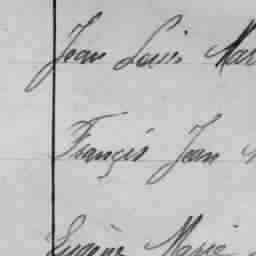 Jean Louis Mar
Françis Jean
Eugène Marie